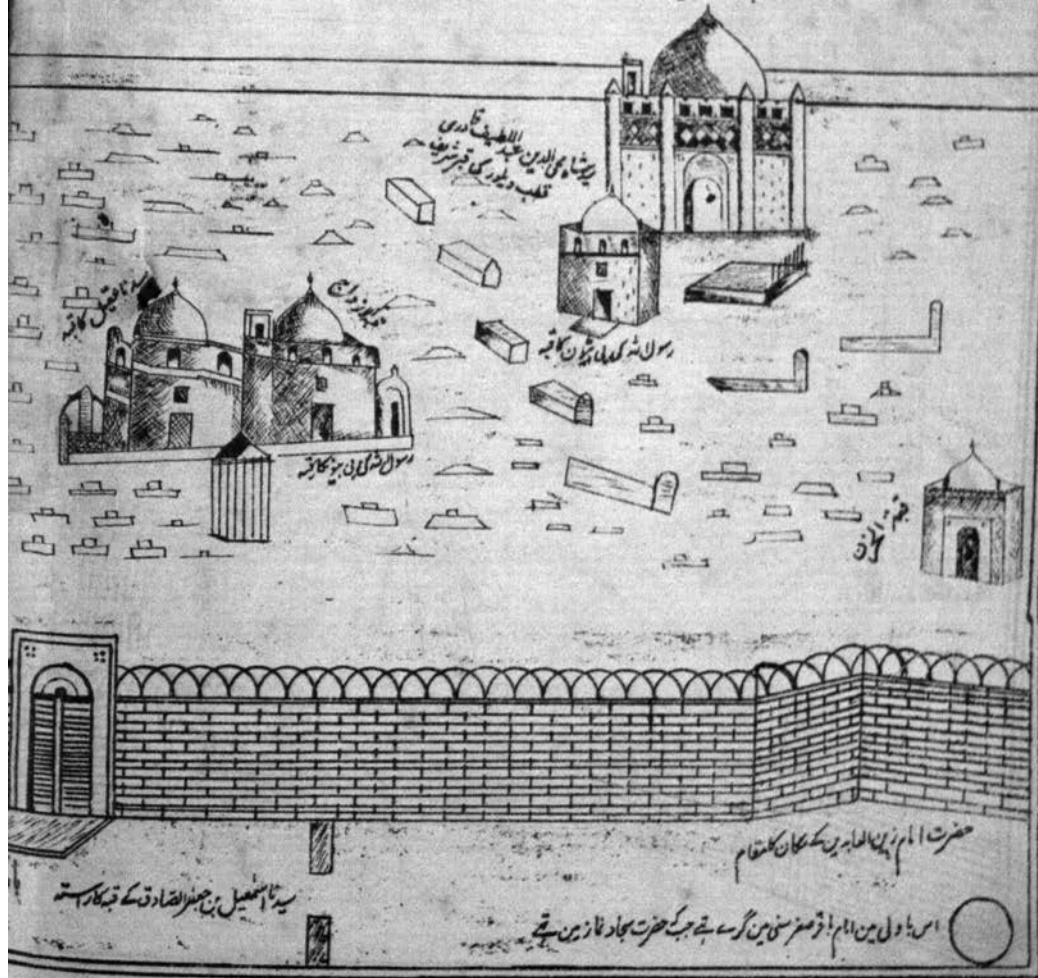 پیر شاہ محی الدین عبد اللطیف قادری
قطب ویلور کی قبر شریف
سیدنا عقیل کا قبہ
رسول اللہ کی بیٹیوں کا قبہ
رسول اللہ کی بی بیوں کا قبہ
قبۃ الحزن
حضرت امام زین العابدین کے مکان کا مقام
سیدنا اسمٰعیل بن جعفر الصادق کے قبہ کا راستہ
اس باولی مین امام باقر صغر سنی مین گرے تہے جب کہ حضرت سجاد نماز مین تہے